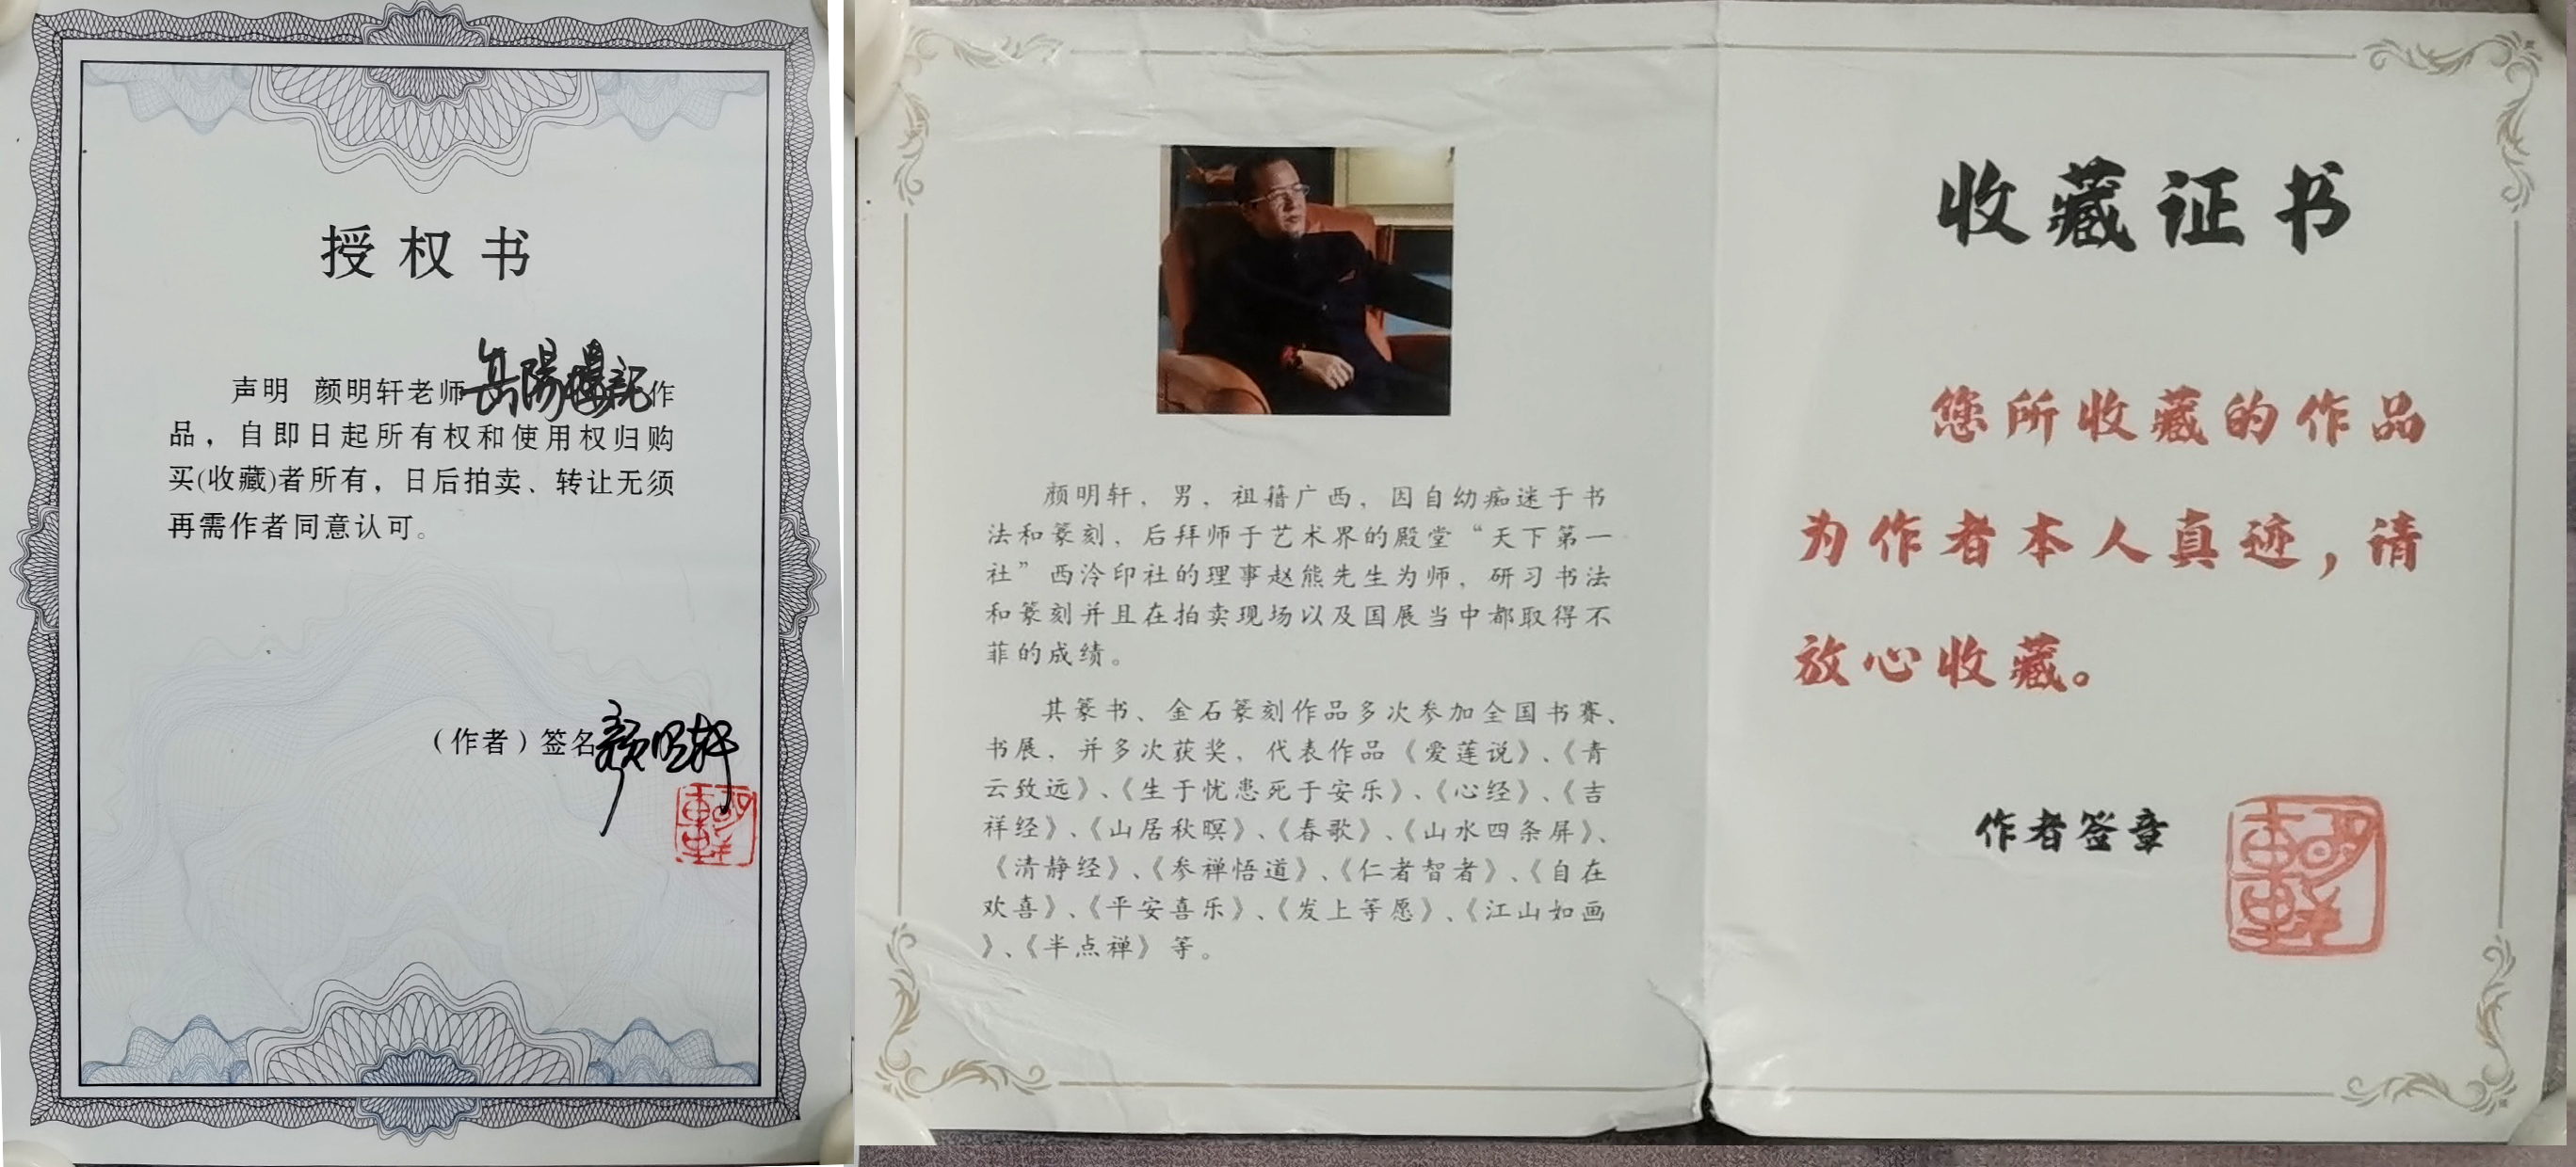 授权书
声明 颜明轩老师岳陽樓記作
品，自即日起所有权和使用权归购
买(收藏)者所有，日后拍卖、转让无须
再需作者同意认可。
（作者）签名颜明轩
明轩
颜明轩，男，祖籍广西，因自幼痴迷于书
法和篆刻，后拜师于艺术界的殿堂“天下第一
社”西泠印社的理事赵熊先生为师，研习书法
和篆刻并且在拍卖现场以及国展当中都取得不
菲的成绩。
其篆书、金石篆刻作品多次参加全国书赛、
书展，并多次获奖，代表作品《爱莲说》、《青
云致远》、《生于忧患死于安乐》、《心经》、《吉
祥经》、《山居秋暝》、《春歌》、《山水四条屏》、
《清静经》、《参禅悟道》、《仁者智者》、《自在
欢喜》、《平安喜乐》、《发上等愿》、《江山如画
》、《半点禅》等。
收藏证书
您所收藏的作品
为作者本人真迹，请
放心收藏。
作者签章